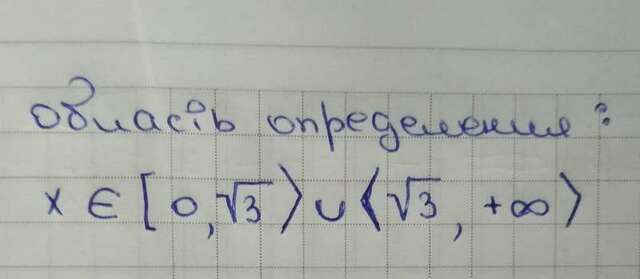 область определения:
x ∈ [0, √3) ∪ (√3, +∞)